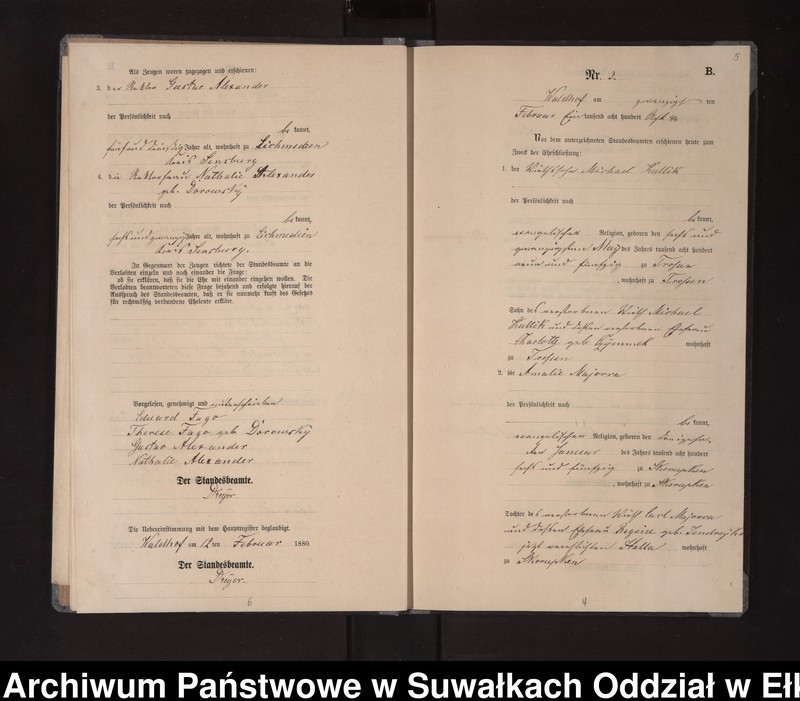 Als Zeugen waren zugezogen und erschienen:
3. der Rektor Gustav Alexander
der Persönlichkeit nach
be kannt,
fünfunddreißig Jahre alt, wohnhaft zu Eichmedien
Kreis Sensburg
4. die Rektorfrau Nathalie Alexander
geb. Dorowsky
der Persönlichkeit nach
be kannt,
sechsundzwanzig Jahre alt, wohnhaft zu Eichmedien
Kreis Sensburg.
In Gegenwart der Zeugen richtete der Standesbeamte an die
Verlobten einzeln und nach einander die Frage:
ob sie erklären, daß sie die Ehe mit einander eingehen wollen. Die
Verlobten beantworteten diese Frage bejahend und erfolgte hierauf der
Ausspruch des Standesbeamten, daß er sie nunmehr kraft des Gesetzes
für rechtmäßig verbundene Eheleute erkläre.
Vorgelesen, genehmigt und unterschrieben
Eduard Fago
Therese Fago geb. Dorowsky
Gustav Alexander
Nathalie Alexander
Der Standesbeamte.
Dreyer.
Die Uebereinstimmung mit dem Hauptregister beglaubigt.
Waldhof am 12 ten Februar 1880.
Der Standesbeamte.
Dreyer.
6
5
B.
Nr. 2.
Waldhof am zwanzigsten
Februar Eintausend acht hundert achtzig
Vor dem unterzeichneten Standesbeamten erschienen heute zum
Zweck der Eheschließung:
1. der Wirthssohn Michael Hullik
der Persönlichkeit nach
be kannt,
evangelischer Religion, geboren den sechs und
zwanzigsten May des Jahres tausend acht hundert
neun und fünfzig zu Trossen
, wohnhaft zu Trossen
Sohn des verstorbenen Wirth Michael
Hullik und dessen verstorbenen Ehefrau
Charlotte geb. wohnhaft
zu Trossen
2. die Amalie Majorra
der Persönlichkeit nach
be kannt,
evangelischer Religion, geboren den
ten Januar des Jahres tausend acht hundert
sechs und fünfzig zu Skorupken
, wohnhaft zu Skorupken
Tochter des verstorbenen Wirth Carl Majorra
und dessen Ehefrau Regine geb.
jetzt verehelichten Stalla wohnhaft
zu Skorupken
4
Archiwum Państwowe w Suwałkach Oddział w Ełk